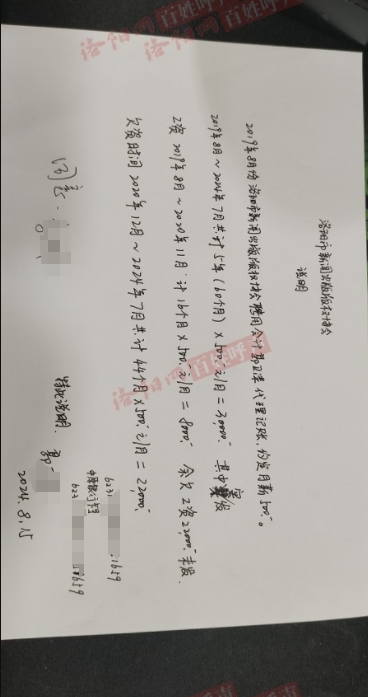 洛阳市新闻出版版权协会
说明
2019年8月份洛阳市新闻出版版权协会聘用会计 代理记账,约定月薪500元。
2019年8月~2024年7月共计5年(60个月)×500元/月=30000元 其中实发
工资 2019年8月~2020年11月 计16个月×500元/月=8000元 余欠工资22000元未发.
欠资时间 2020年12月~2024年7月共计44个月×500元/月=22000元
同意.
特此说明.
2024.8.15
洛阳网 百姓呼声
洛阳网 百姓呼声
洛阳网 百姓呼声